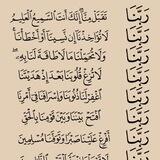 رَبَّنَا تَقَبَّلْ مِنَّا إِنَّكَ أَنتَ السَّمِيعُ الْعَلِيمُ
رَبَّنَا لَا تُؤَاخِذْنَا إِن نَّسِينَا أَوْ أَخْطَأْنَا
رَبَّنَا وَلَا تُحَمِّلْنَا مَا لَا طَاقَةَ لَنَا بِهِ
رَبَّنَا لَا تُزِغْ قُلُوبَنَا بَعْدَ إِذْ هَدَيْتَنَا
رَبَّنَا اغْفِرْ لَنَا ذُنُوبَنَا وَإِسْرَافَنَا فِي أَمْرِنَا
رَبَّنَا افْتَحْ بَيْنَنَا وَبَيْنَ قَوْمِنَا بِالْحَقِّ
رَبَّنَا أَفْرِغْ عَلَيْنَا صَبْرًا وَتَوَفَّنَا مُسْلِمِينَ